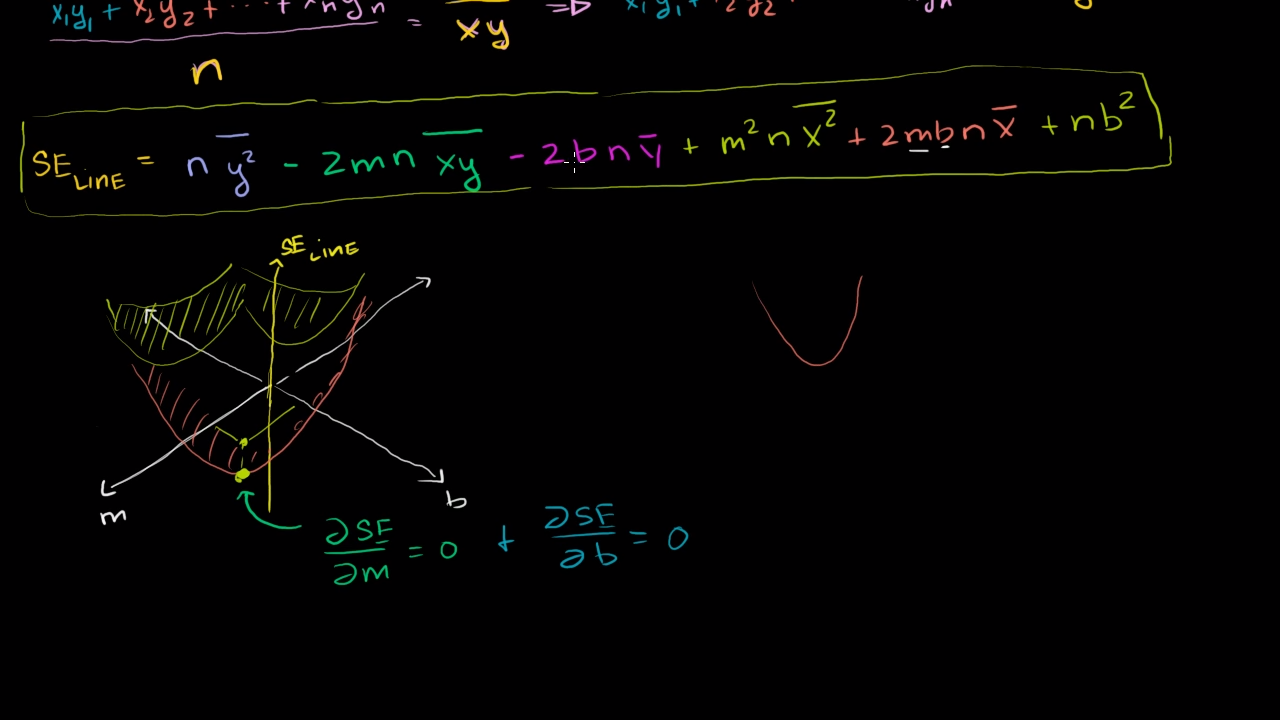 x₁y₁ + x₂y₂ + ... + xₙyₙ = x̅y̅ ⇒ x₁y₁ +
n
SE_LINE = n y̅²̅ - 2mn x̅y̅ - 2bn y̅ + m²n x̅²̅ + 2mbn x̅ + nb²
SE_LINE
m
b
∂SE/∂m = 0 + ∂SE/∂b = 0